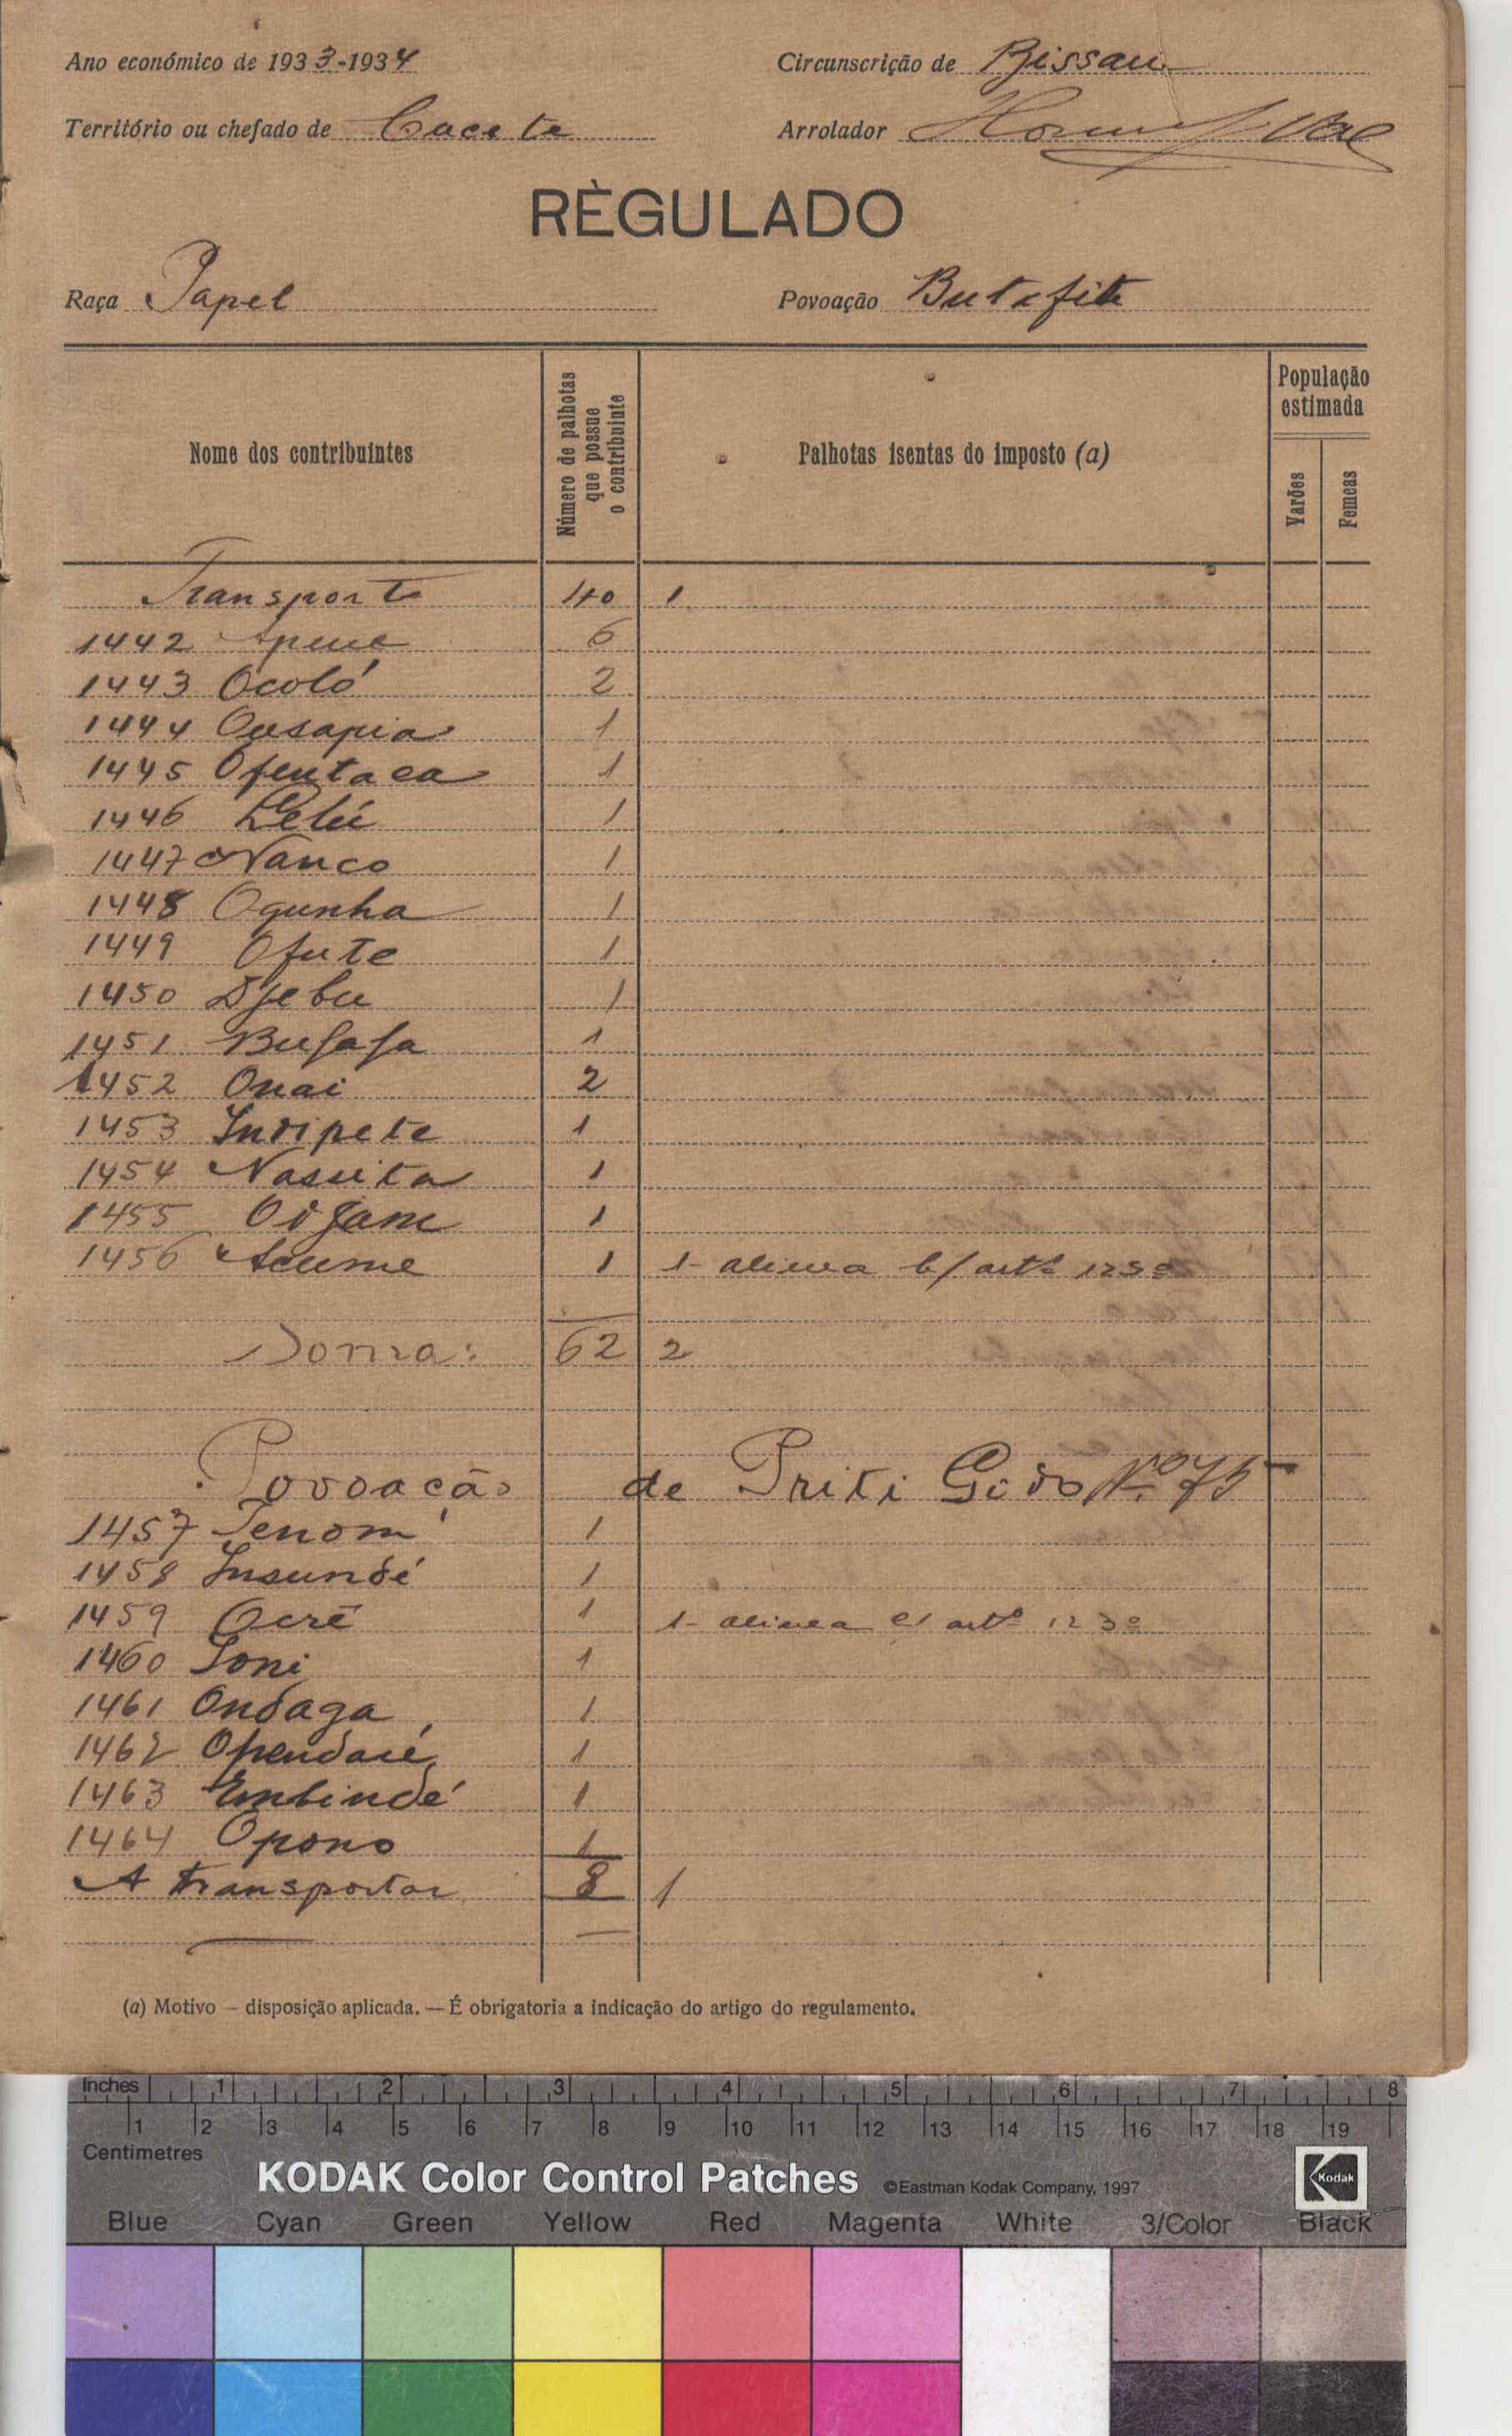 Ano económico de 1933-1934 Circunscrição de Bissau
Território ou chefado de Cacete Arrolador
RÈGULADO
Raça Papel Povoação Butefite
Nome dos contribuintes
Número de palhotas
que possue
o contribuinte
Palhotas isentas do imposto (a)
População
estimada
Varões
Femeas
Transporte 40 1
1442 Apene 6
1443 Ocoló 2
1444 Ousapia 1
1445 Ofentaca 1
1446 Lelú 1
1447 Nanco 1
1448 Ogunha 1
1449 Ofute 1
1450 Djebu 1
1451 Bufafa 1
1452 Onai 2
1453 Indipete 1
1454 Nassita 1
1455 Odjam 1
1456 Acume 1 1- alinea b/ artº 123º
Soma: 62 2
Povoação de Priti Gido Nº 75-
1457 Tenom 1
1458 Insundé 1
1459 Ocrê 1 1- alinea artº 123º
1460 Soni 1
1461 Ondaga 1
1462 Opendaié 1
1463 Embindé 1
1464 Opono 1
A transportar 8 1
(a) Motivo — disposição aplicada. — É obrigatoria a indicação do artigo do regulamento.
Inches 1 2 3 4 5 6 7 8
1 2 3 4 5 6 7 8 9 10 11 12 13 14 15 16 17 18 19
Centimetres
KODAK Color Control Patches ©Eastman Kodak Company, 1997 Kodak
Blue Cyan Green Yellow Red Magenta White 3/Color Black